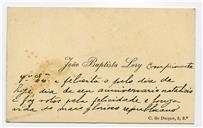 João Baptista Lory Comprimenta
V.ª Ex.ª e felicita-o pelo dia de
hoje, dia de seu anniversario natalicio
e faz votos pela felicidade e longa
vida do mais glorioso republicano
C. do Duque, 3, 2.º